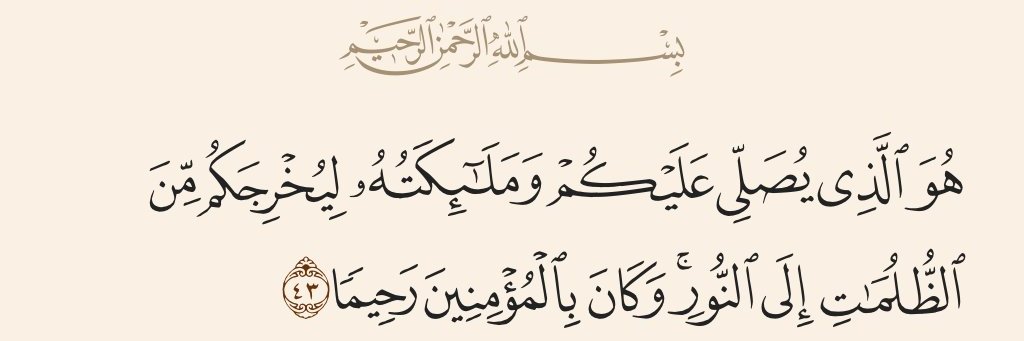 بِسْمِ ٱللَّهِ ٱلرَّحْمَٰنِ ٱلرَّحِيمِ
هُوَ ٱلَّذِى يُصَلِّى عَلَيْكُمْ وَمَلَـٰٓئِكَتُهُۥ لِيُخْرِجَكُم مِّنَ
ٱلظُّلُمَـٰتِ إِلَى ٱلنُّورِ ۚ وَكَانَ بِٱلْمُؤْمِنِينَ رَحِيمًا ٤٣